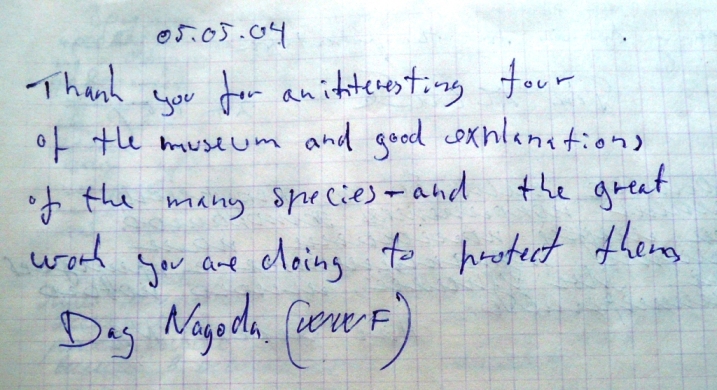 05.05.04
Thank you for an ititeresting tour
of the museum and good explanations
of the many species - and the great
work you are doing to protect them
Dag Nagoda. (WWF)